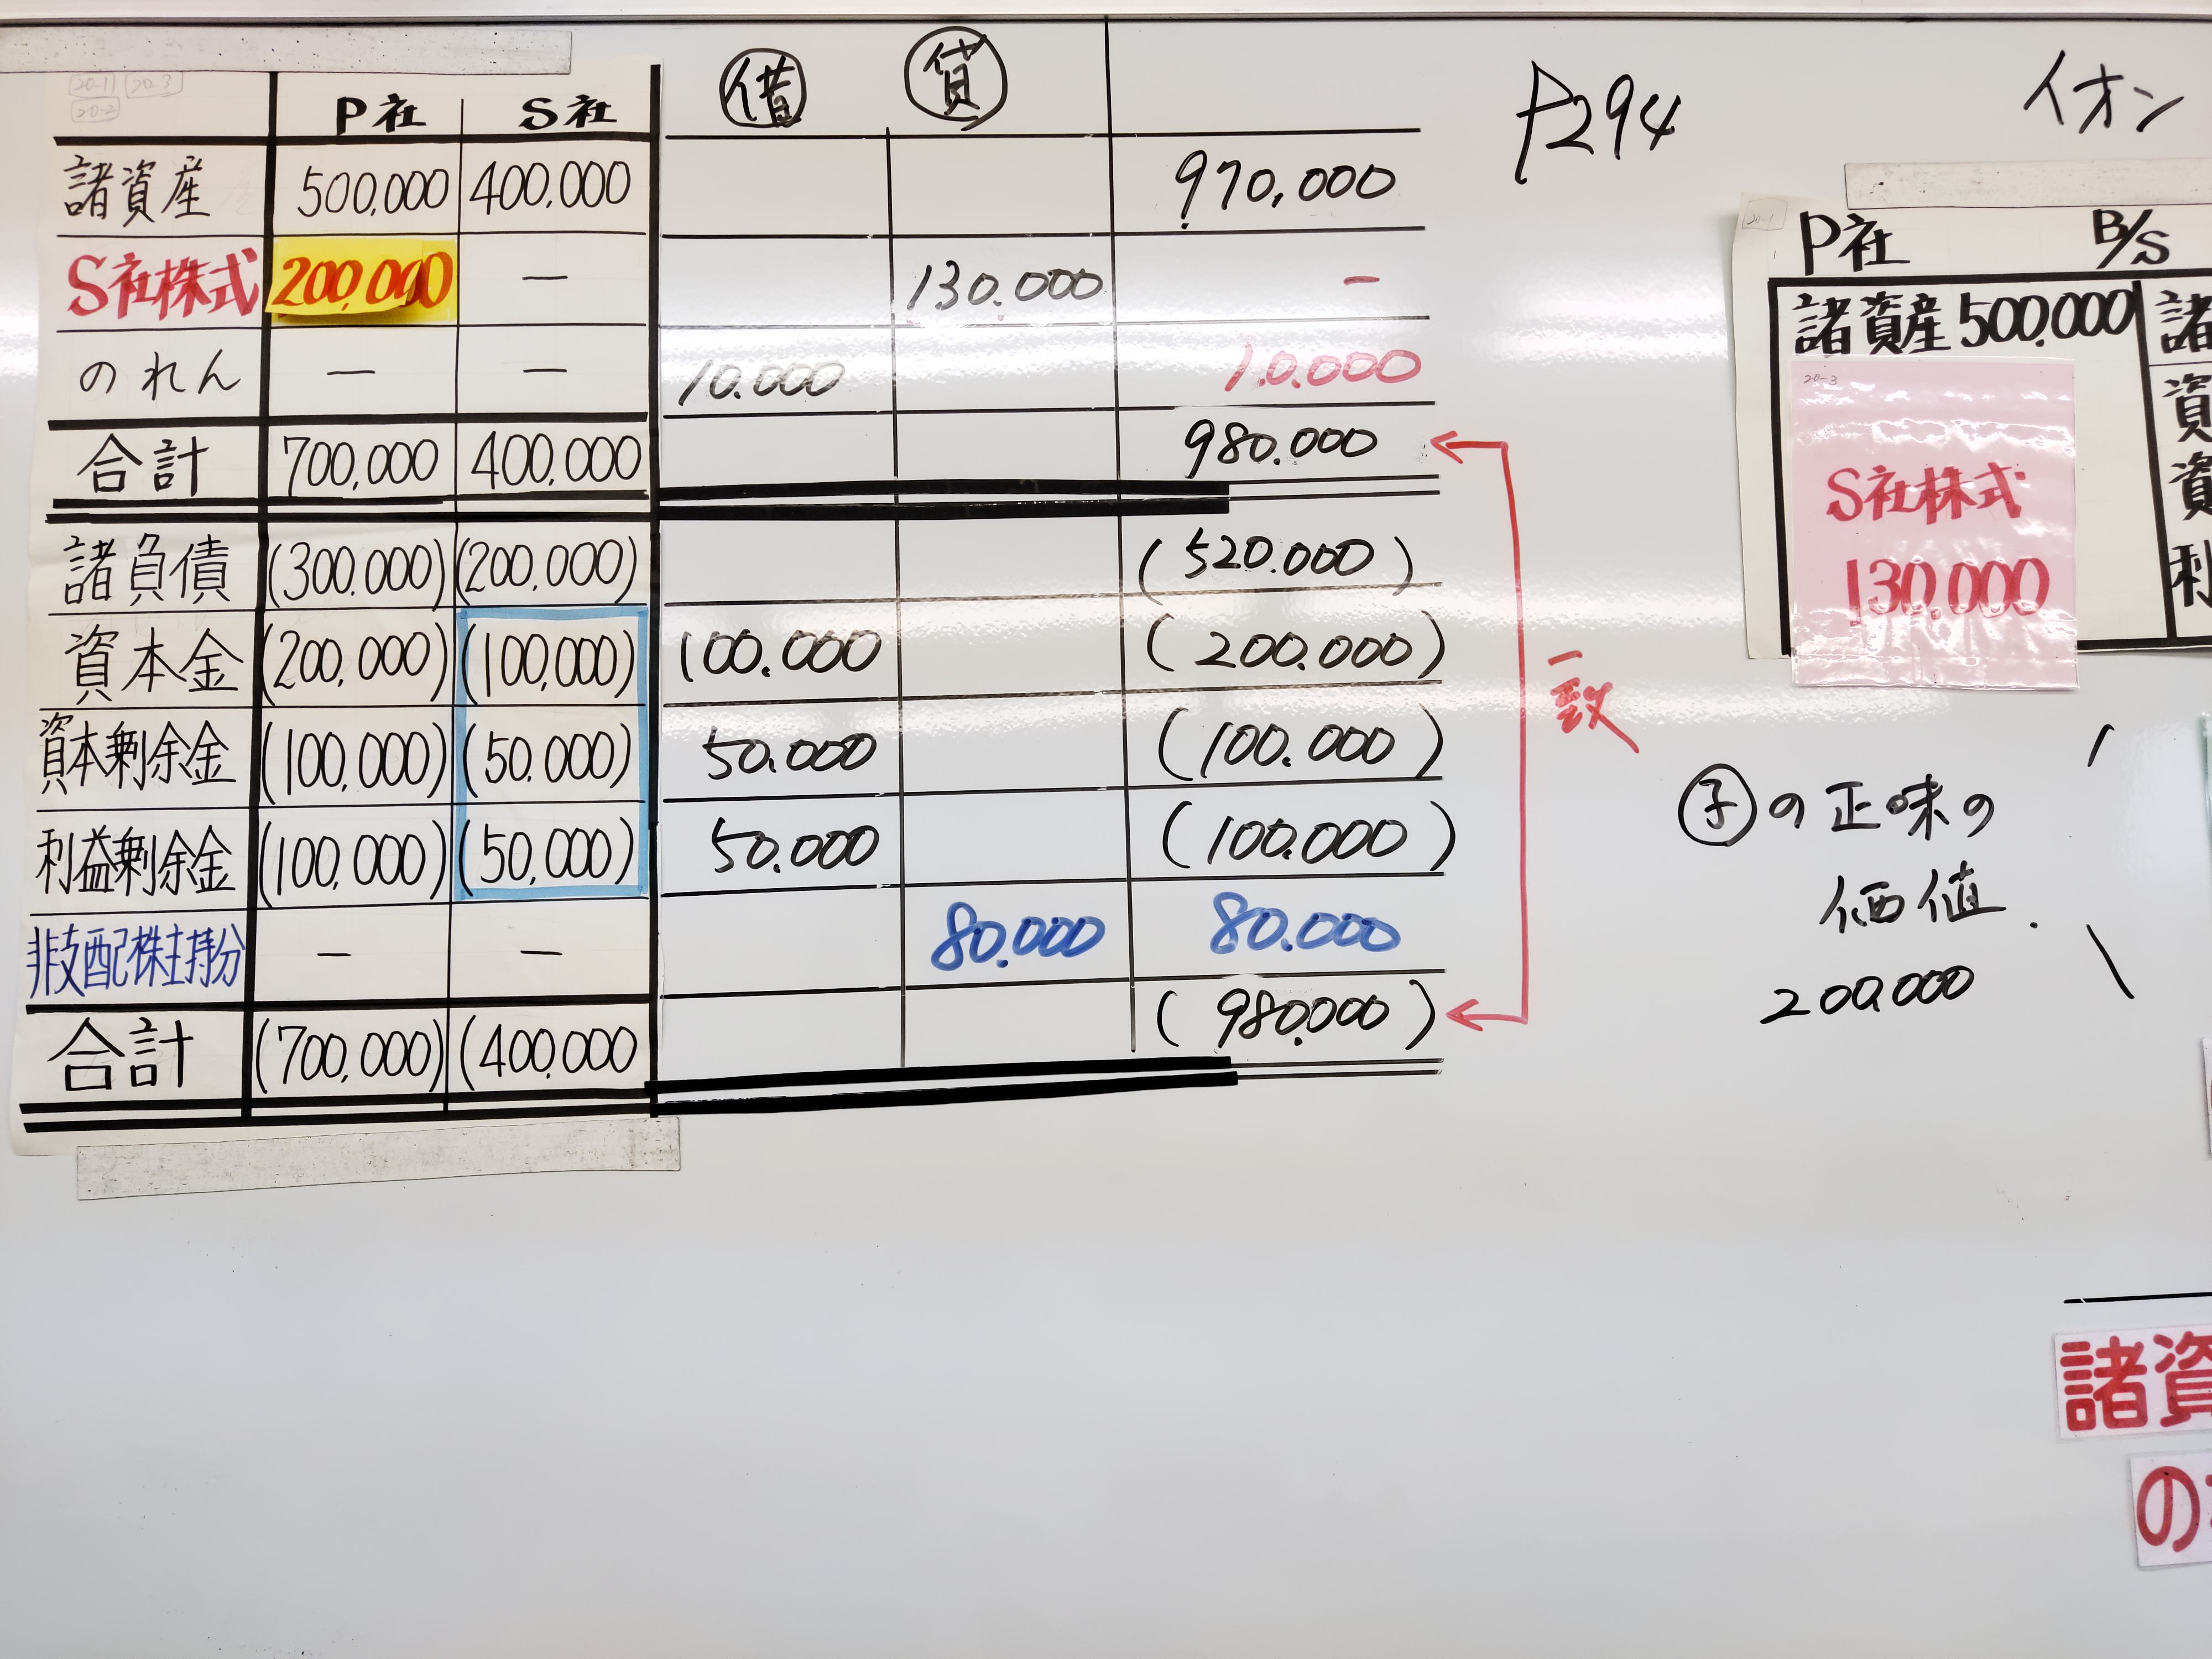 20-1 20-3
20-2
P社 S社 借 貸
諸資産 500,000 400,000 970,000
S社株式 200,000 — 130.000 -
のれん — — 10.000 10.000
合計 700,000 400,000 980.000
諸負債 (300.000) (200,000) (520.000)
資本金 (200,000) (100,000) 100.000 (200.000)
資本剰余金 (100,000) (50,000) 50.000 (100.000)
利益剰余金 (100,000) (50,000) 50.000 (100.000)
非支配株主持分 — — 80.000 80.000
合計 (700,000) (400,000 (980.000)
一致
P294
イオン
20-1
P社 B/S
諸資産 500,000 諸
資
資
利
20-3
S社株式
130,000
子の正味の
価値.
200,000
諸資
の